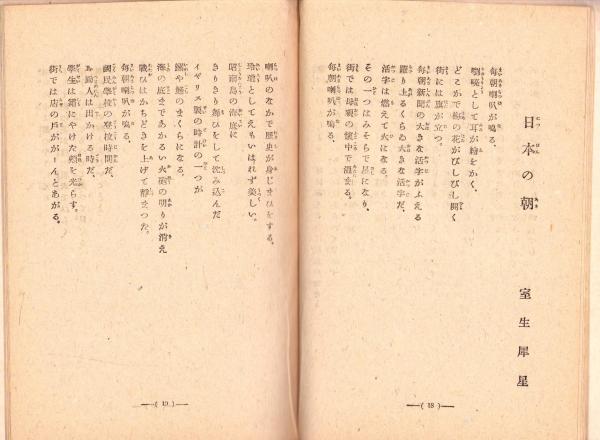 日本の朝
室生犀星
每朝喇叭が鳴る。
嚠喨として耳が繪をかく。
どこかで梅の花がびしびし開く
街には旗が立つ。
每朝新聞の大きな活字がふえる
躍り上るくらゐ大きな活字だ、
活字は燃えて火になる。
その一つはみそらで星になり、
街では母親の懷中で溫まる。
每朝喇叭が鳴る。
—( 18 )—
喇叭のなかで歷史が身じまひをする。
玲瓏としてえもいはれず美しい。
昭南島の海底に
きりきり舞ひをして沈み込んだ
イギリス製の時計の一つが
鰯や鱶のまくらになる。
海の底まであかるい大砲の明りが消え
戰ひはかちどきを上げて靜まつた。
每朝喇叭が鳴る。
國民學校の登校時間だ。
お勤人は出かける時だ。
學生は霜にやけた頰を光らす。
街では店の戶ががーんとあがる。
—( 19 )—